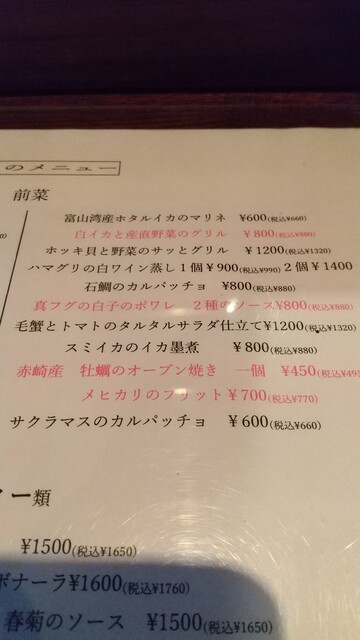 のメニュー
前菜
富山湾産ホタルイカのマリネ ¥600(税込¥660)
白イカと産直野菜のグリル ¥800(税込¥880)
ホッキ貝と野菜のサッとグリル ¥1200(税込¥1320)
ハマグリの白ワイン蒸し1個¥900(税込¥990) 2個¥1400
石鯛のカルパッチョ ¥800(税込¥880)
真フグの白子のポワレ 2種のソース¥800(税込¥880)
毛蟹とトマトのタルタルサラダ仕立て¥1200(税込¥1320)
スミイカのイカ墨煮 ¥800(税込¥880)
赤崎産 牡蠣のオーブン焼き 一個 ¥450(税込¥495
メヒカリのフリット¥700(税込¥770)
サクラマスのカルパッチョ ¥600(税込¥660)
ー類
¥1500(税込¥1650)
ボナーラ¥1600(税込¥1760)
春菊のソース ¥1500(税込¥1650)